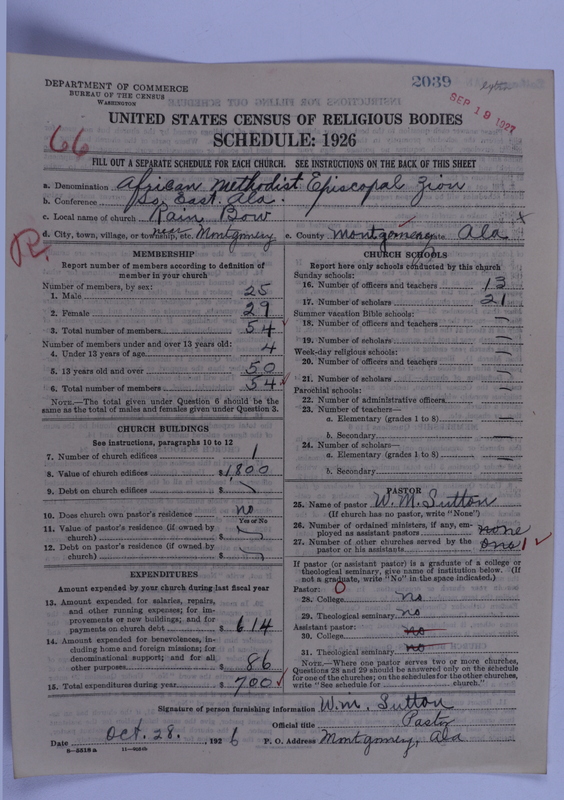 DEPARTMENT OF COMMERCE
BUREAU OF THE CENSUS
WASHINGTON
2039
SEP 18 1927
UNITED STATES CENSUS OF RELIGIOUS BODIES
66
SCHEDULE: 1926
FILL OUT A SEPARATE SCHEDULE FOR EACH CHURCH. SEE INSTRUCTIONS ON THE BACK OF THIS SHEET
a. Denomination African Methodist Episcopal Zion
b. Conference So. East. Ala.
c. Local name of church Rain Bow
d. City, town, village, or township, etc. near Montgomery e. County Montgomery State Ala x
R.
MEMBERSHIP
Report number of members according to definition of
member in your church
Number of members, by sex:
1. Male 25
2. Female 29
3. Total number of members 54 ✓
Number of members under and over 13 years old:
4. Under 13 years of age 4
5. 13 years old and over 50
6. Total number of members 54 ✓
NOTE.—The total given under Question 6 should be the
same as the total of males and females given under Question 3.
CHURCH BUILDINGS
See instructions, paragraphs 10 to 12
7. Number of church edifices 1
8. Value of church edifices $ 1,800
9. Debt on church edifices $
10. Does church own pastor's residence no
Yes or No
11. Value of pastor's residence (if owned by
church) $
12. Debt on pastor's residence (if owned by
church) $
EXPENDITURES
Amount expended by your church during last fiscal year
13. Amount expended for salaries, repairs,
and other running expenses; for im-
provements or new buildings; and for
payments on church debt $ 614
14. Amount expended for benevolences, in-
cluding home and foreign missions; for
denominational support; and for all
other purposes $ 86
15. Total expenditures during year $ 700 ✓
CHURCH SCHOOLS
Report here only schools conducted by this church
Sunday schools:
16. Number of officers and teachers 13
17. Number of scholars 21
Summer vacation Bible schools:
18. Number of officers and teachers
19. Number of scholars
Week-day religious schools:
20. Number of officers and teachers
21. Number of scholars
Parochial schools:
22. Number of administrative officers
23. Number of teachers—
a. Elementary (grades 1 to 8)
b. Secondary
24. Number of scholars—
a. Elementary (grades 1 to 8)
b. Secondary
PASTOR
25. Name of pastor W. M. Sutton
(If church has no pastor, write "None")
26. Number of ordained ministers, if any, em-
ployed as assistant pastors none
27. Number of other churches served by the
pastor or his assistants one 1 ✓
If pastor (or assistant pastor) is a graduate of a college or
theological seminary, give name of institution below. (If
not a graduate, write "No" in the space indicated.)
Pastor: 0
28. College no
29. Theological seminary no
Assistant pastor:
30. College no
31. Theological seminary no
NOTE.—Where one pastor serves two or more churches,
Questions 28 and 29 should be answered only on the schedule
for one of the churches; on the schedules for the other churches,
write "See schedule for church."
Signature of person furnishing information W. M. Sutton
Official title Pastor
Date Oct. 28, 1926 P. O. Address Montgomery, Ala
9—5818 a